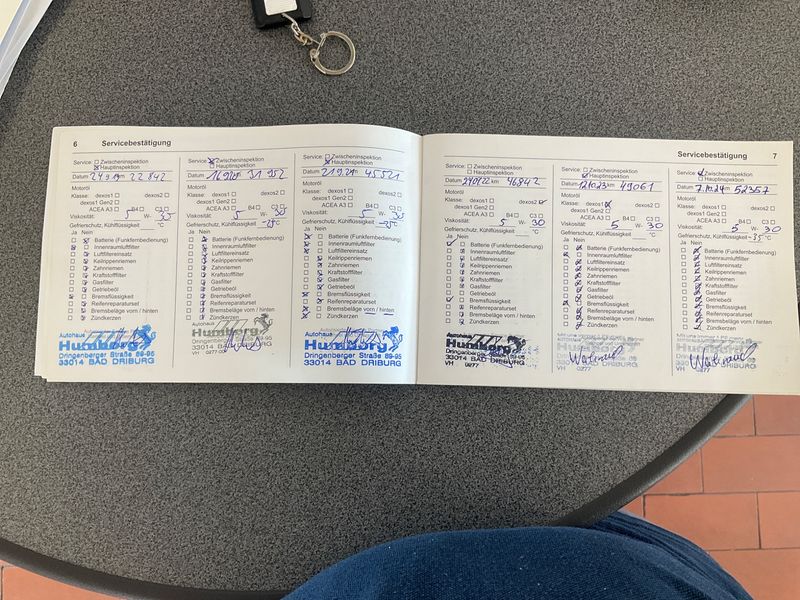 6 Servicebestätigung
Service: Zwischeninspektion
Hauptinspektion
Datum 22 842
Motoröl
Klasse: dexos1 dexos2
dexos1 Gen2
ACEA A3 B4 C3
Viskosität: 5 W- 30
Gefrierschutz, Kühlflüssigkeit °C
Ja Nein
Batterie (Funkfernbedienung)
Innenraumluftfilter
Luftfiltereinsatz
Keilrippenriemen
Zahnriemen
Kraftstofffilter
Gasfilter
Getriebeöl
Bremsflüssigkeit
Reifenreparaturset
Bremsbeläge vorn / hinten
Zündkerzen
Autohaus
Humborg
Dringenberger Straße 89-95
33014 BAD DRIBURG
Service: Zwischeninspektion
Hauptinspektion
Datum 31 952
Motoröl
Klasse: dexos1 dexos2
dexos1 Gen2
ACEA A3 B4 C3
Viskosität: 5 W- 30
Gefrierschutz, Kühlflüssigkeit
Ja Nein
Batterie (Funkfernbedienung)
Innenraumluftfilter
Luftfiltereinsatz
Keilrippenriemen
Zahnriemen
Kraftstofffilter
Gasfilter
Getriebeöl
Bremsflüssigkeit
Reifenreparaturset
Bremsbeläge vorn / hinten
Zündkerzen
Autohaus
Humborg
33014 BAD DRIBURG
Service: Zwischeninspektion
Hauptinspektion
Datum 21 9 21 45521
Motoröl
Klasse: dexos1 dexos2
dexos1 Gen2
ACEA A3 B4 C3
Viskosität: 5 W- 30
Gefrierschutz, Kühlflüssigkeit
Ja Nein
Batterie (Funkfernbedienung)
Innenraumluftfilter
Luftfiltereinsatz
Keilrippenriemen
Zahnriemen
Kraftstofffilter
Gasfilter
Getriebeöl
Bremsflüssigkeit
Reifenreparaturset
Bremsbeläge vorn / hinten
Zündkerzen
Autohaus
Humborg
Dringenberger Straße 89-95
33014 BAD DRIBURG
Servicebestätigung 7
Service: Zwischeninspektion
Hauptinspektion
Datum km 46842
Motoröl
Klasse: dexos1 dexos2
dexos1 Gen2
ACEA A3 B4 C3
Viskosität: 5 W- 30
Gefrierschutz, Kühlflüssigkeit °C
Ja Nein
Batterie (Funkfernbedienung)
Innenraumluftfilter
Luftfiltereinsatz
Keilrippenriemen
Zahnriemen
Kraftstofffilter
Gasfilter
Getriebeöl
Bremsflüssigkeit
Reifenreparaturset
Bremsbeläge vorn / hinten
Zündkerzen
Autohaus
Humborg
33014 BAD DRIBURG
VH 0277
Service: Zwischeninspektion
Hauptinspektion
Datum 49061
Motoröl
Klasse: dexos1 dexos2
dexos1 Gen2
ACEA A3 B4 C3
Viskosität: 5 W- 30
Gefrierschutz, Kühlflüssigkeit °C
Ja Nein
Batterie (Funkfernbedienung)
Innenraumluftfilter
Luftfiltereinsatz
Keilrippenriemen
Zahnriemen
Kraftstofffilter
Gasfilter
Getriebeöl
Bremsflüssigkeit
Reifenreparaturset
Bremsbeläge vorn / hinten
Zündkerzen
VH 0277
Service: Zwischeninspektion
Hauptinspektion
Datum 7.10.24 52357
Motoröl
Klasse: dexos1 dexos2
dexos1 Gen2
ACEA A3 B4 C3
Viskosität: 5 W- 30
Gefrierschutz, Kühlflüssigkeit °C
Ja Nein
Batterie (Funkfernbedienung)
Innenraumluftfilter
Luftfiltereinsatz
Keilrippenriemen
Zahnriemen
Kraftstofffilter
Gasfilter
Getriebeöl
Bremsflüssigkeit
Reifenreparaturset
Bremsbeläge vorn / hinten
Zündkerzen
VH 0277